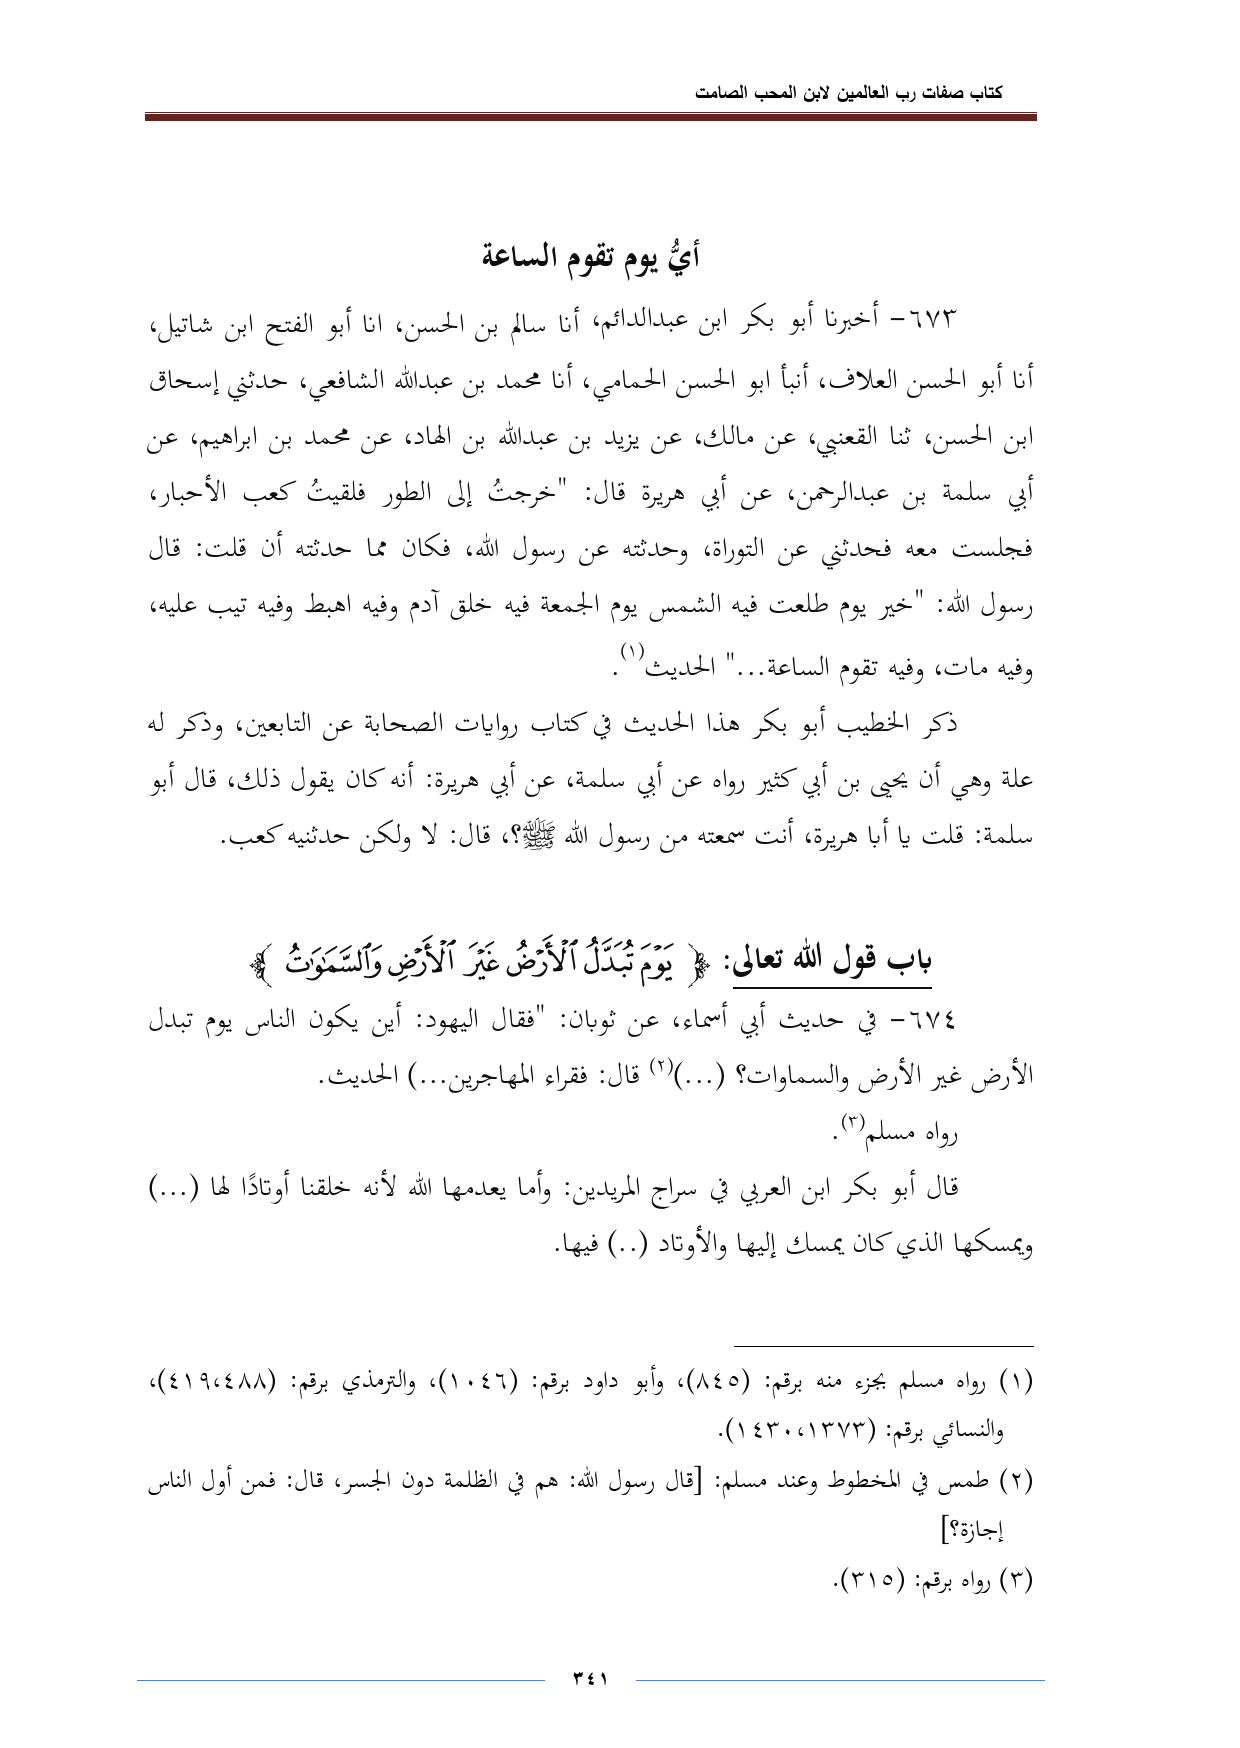 كتاب صفات رب العالمين لابن المحب الصامت
أيُّ يوم تقوم الساعة
٦٧٣- أخبرنا أبو بكر ابن عبدالدائم، أنا سالم بن الحسن، انا أبو الفتح ابن شاتيل،
أنا أبو الحسن العلاف، أنبأ ابو الحسن الحمامي، أنا محمد بن عبدالله الشافعي، حدثني إسحاق
ابن الحسن، ثنا القعنبي، عن مالك، عن يزيد بن عبدالله بن الهاد، عن محمد بن ابراهيم، عن
أبي سلمة بن عبدالرحمن، عن أبي هريرة قال: "خرجتُ إلى الطور فلقيتُ كعب الأحبار،
فجلست معه فحدثني عن التوراة، وحدثته عن رسول الله، فكان مما حدثته أن قلت: قال
رسول الله: "خير يوم طلعت فيه الشمس يوم الجمعة فيه خلق آدم وفيه اهبط وفيه تيب عليه،
وفيه مات، وفيه تقوم الساعة..." الحديث(١).
ذكر الخطيب أبو بكر هذا الحديث في كتاب روايات الصحابة عن التابعين، وذكر له
علة وهي أن يحيى بن أبي كثير رواه عن أبي سلمة، عن أبي هريرة: أنه كان يقول ذلك، قال أبو
سلمة: قلت يا أبا هريرة، أنت سمعته من رسول الله ﷺ؟، قال: لا ولكن حدثنيه كعب.
باب قول الله تعالى: ﴿ يَوْمَ تُبَدَّلُ ٱلْأَرْضُ غَيْرَ ٱلْأَرْضِ وَٱلسَّمَٰوَٰتُ ﴾
٦٧٤- في حديث أبي أسماء، عن ثوبان: "فقال اليهود: أين يكون الناس يوم تبدل
الأرض غير الأرض والسماوات؟ (...)(٢) قال: فقراء المهاجرين...) الحديث.
رواه مسلم(٣).
قال أبو بكر ابن العربي في سراج المريدين: وأما يعدمها الله لأنه خلقنا أوتادًا لها (...)
ويمسكها الذي كان يمسك إليها والأوتاد (..) فيها.
(١) رواه مسلم بجزء منه برقم: (٨٤٥)، وأبو داود برقم: (١٠٤٦)، والترمذي برقم: (٤١٩،٤٨٨)،
والنسائي برقم: (١٤٣٠،١٣٧٣).
(٢) طمس في المخطوط وعند مسلم: [قال رسول الله: هم في الظلمة دون الجسر، قال: فمن أول الناس
إجازة؟]
(٣) رواه برقم: (٣١٥).
٣٤١